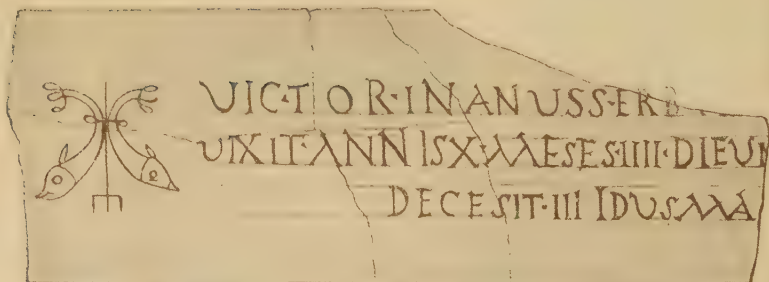 UICTOR·INANUS
UIXIT·ANNISX·MESES·IIII·
DECESIT·III IDUS·MA